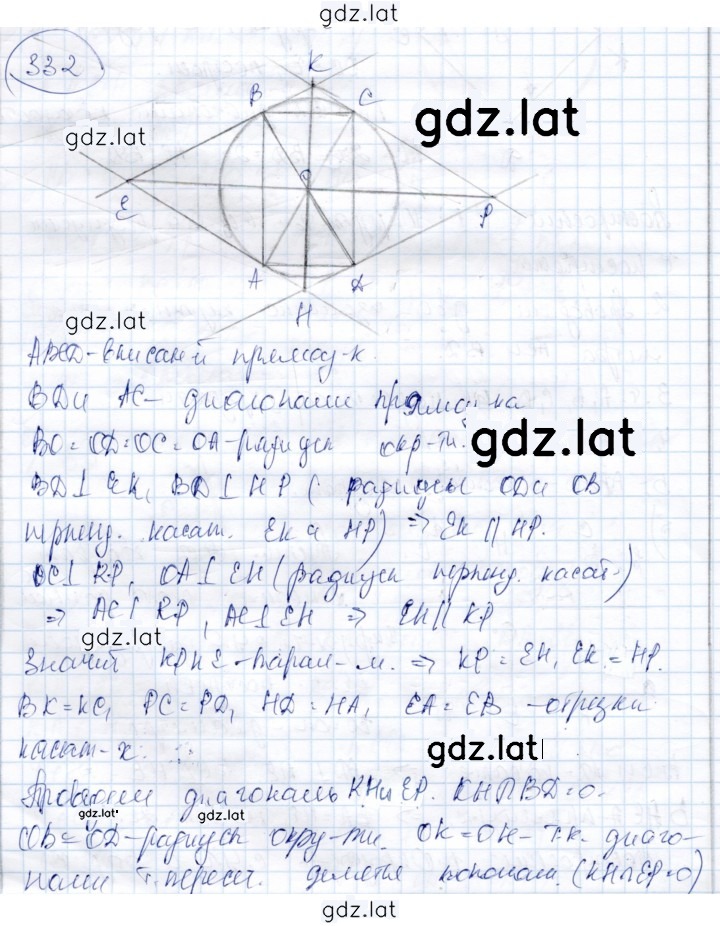 gdz.lat
332
K
B C
gdz.lat
gdz.lat
E O P
A D
H
gdz.lat
ABCD - вписаный прямоуг-к.
BD и AC - диагонали прямо-ка
gdz.lat
BO = OD = OC = OA - радиусы окр-ти.
BD ⊥ EK, BD ⊥ HP ( радиусы OD и OB
перпенд. касат. EK и HP) ⇒ EK || HP.
OC ⊥ KP, OA ⊥ EH (радиусы перпенд. касат-)
⇒ AC ⊥ KP, AC ⊥ EH ⇒ EH || KP
gdz.lat
Значит KPHE - парал-м. ⇒ KP = EH, EK = HP.
BK = KC, PC = PD, HD = HA, EA = EB - отрезки
касат-х.
gdz.lat
Проведем диагональ KH и EP. KH ∩ BD = O.
gdz.lat gdz.lat
OB = OD - радиусы окру-ти. OK = OH - т.к. диаго-
нали т. перес. делятся пополам. (KH ∩ EP = O)
gdz.lat